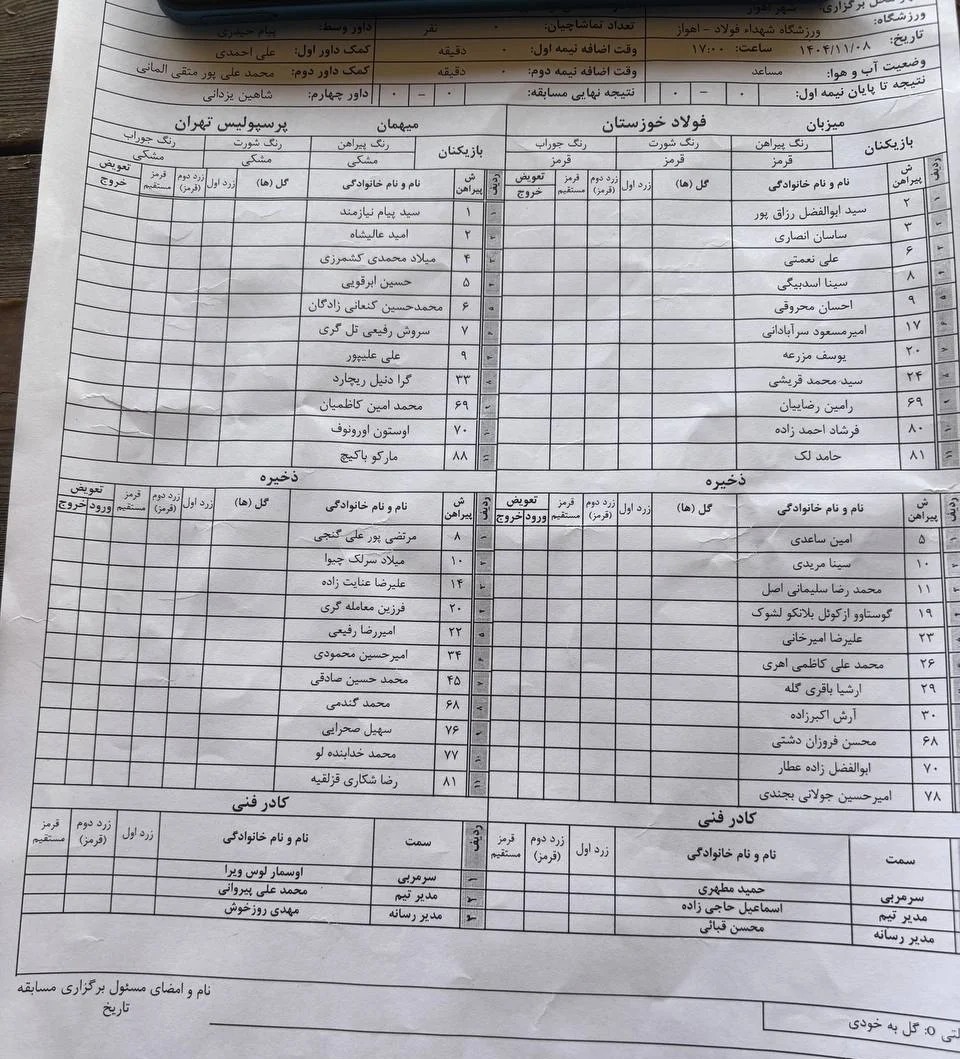 محل برگزاری: شهر اهواز
ورزشگاه: ورزشگاه شهداء فولاد - اهواز تعداد تماشاچیان: ۰ نفر داور وسط: پیام حیدری
تاریخ: ۱۴۰۴/۱۱/۰۸ ساعت: ۱۷:۰۰ وقت اضافه نیمه اول: ۰ دقیقه کمک داور اول: علی احمدی
وضعیت آب و هوا: مساعد وقت اضافه نیمه دوم: ۰ دقیقه کمک داور دوم: محمد علی پور متقی المانی
نتیجه تا پایان نیمه اول: ۰ – ۰ نتیجه نهایی مسابقه: ۰ – ۰ داور چهارم: شاهین یزدانی
میزبان فولاد خوزستان
بازیکنان رنگ پیراهن رنگ شورت رنگ جوراب
قرمز قرمز قرمز
ردیف ش پیراهن نام و نام خانوادگی گل (ها) زرد اول زرد دوم (قرمز) قرمز مستقیم تعویض خروج
۱ ۲ سید ابوالفضل رزاق پور
۲ ۳ ساسان انصاری
۳ ۶ علی نعمتی
۴ ۸ سینا اسدبیگی
۵ ۹ احسان محروقی
۶ ۱۷ امیرمسعود سرآبادانی
۷ ۲۰ یوسف مزرعه
۸ ۲۴ سید محمد قریشی
۹ ۶۹ رامین رضاییان
۱۰ ۸۰ فرشاد احمد زاده
۱۱ ۸۱ حامد لک
ذخیره
ردیف ش پیراهن نام و نام خانوادگی گل (ها) زرد اول زرد دوم (قرمز) قرمز مستقیم تعویض ورود خروج
۱ ۵ امین ساعدی
۲ ۱۰ سینا مریدی
۳ ۱۱ محمد رضا سلیمانی اصل
۴ ۱۹ گوستاوو ازکوئل بلانکو لشوک
۵ ۲۳ علیرضا امیرخانی
۲۶ محمد علی کاظمی اهری
۲۹ ارشیا باقری گله
۳۰ آرش اکبرزاده
۶۸ محسن فروزان دشتی
۷۰ ابوالفضل زاده عطار
۷۸ امیرحسین جولانی بجندی
کادر فنی
سمت نام و نام خانوادگی زرد اول زرد دوم (قرمز) قرمز مستقیم
سرمربی حمید مطهری
مدیر تیم اسماعیل حاجی زاده
مدیر رسانه محسن قبائی
میهمان پرسپولیس تهران
بازیکنان رنگ پیراهن رنگ شورت رنگ جوراب
مشکی مشکی مشکی
ردیف ش پیراهن نام و نام خانوادگی گل (ها) زرد اول زرد دوم (قرمز) قرمز مستقیم تعویض خروج
۱ ۱ سید پیام نیازمند
۲ ۲ امید عالیشاه
۳ ۴ میلاد محمدی کشمرزی
۴ ۵ حسین ابرقویی
۵ ۶ محمدحسین کنعانی زادگان
۶ ۷ سروش رفیعی تل گری
۷ ۹ علی علیپور
۸ ۳۳ گرا دنیل ریچارد
۹ ۶۹ محمد امین کاظمیان
۱۰ ۷۰ اوستون اورونوف
۱۱ ۸۸ مارکو باکیچ
ذخیره
ردیف ش پیراهن نام و نام خانوادگی گل (ها) زرد اول زرد دوم (قرمز) قرمز مستقیم تعویض ورود خروج
۱ ۸ مرتضی پور علی گنجی
۲ ۱۰ میلاد سرلک چیوا
۳ ۱۴ علیرضا عنایت زاده
۴ ۲۰ فرزین معامله گری
۵ ۲۲ امیررضا رفیعی
۶ ۳۴ امیرحسین محمودی
۷ ۴۵ محمد حسین صادقی
۸ ۶۸ محمد گندمی
۹ ۷۶ سهیل صحرایی
۱۰ ۷۷ محمد خدابنده لو
۱۱ ۸۱ رضا شکاری قزلقیه
کادر فنی
ردیف سمت نام و نام خانوادگی زرد اول زرد دوم (قرمز) قرمز مستقیم
۱ سرمربی اوسمار لوس ویرا
۲ مدیر تیم محمد علی پیروانی
۳ مدیر رسانه مهدی روزخوش
نام و امضای مسئول برگزاری مسابقه
تاریخ
O: گل به خودی